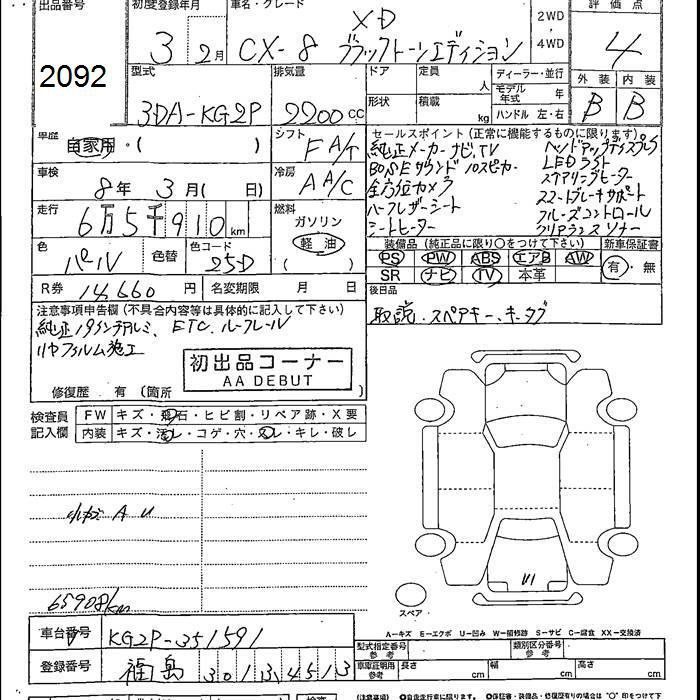 出品番号
初度登録年月
車名・グレード
評価点
2092
3年2月
CX-8
XD
ブラックトーンエディション
2WD
4WD
4
外装 内装
B B
型式
3DA-KG2P
排気量
2200 CC
ドア
定員 人
形状
積載 kg
ディーラー・並行
モデル年式 年
ハンドル 左・右
車歴
自家用・( )
シフト
FA/T
車検
8年 3月( 日)
冷房
AA/C
走行
6万5千910km
燃料
ガソリン
軽油
( )
色
パール
色替
色コード
25D
R券 14,660円
名変期限 月 日
セールスポイント(正常に機能するものに限ります)
純正メーカーナビ,TV
BOSEサウンド10スピーカー
全方位カメラ
ハーフレザーシート
シートヒーター
ヘッドアップディスプレイ
LEDライト
ステアリングヒーター
スマートブレーキサポート
クルーズコントロール
クリアランスソナー
装備品(純正品に限り○をつけて下さい)
PS PW ABS エアB AW
SR ナビ TV 本革
新車保証書
有・無
後日品
取説、スペアキー、キータブ
注意事項申告欄(不具合内容等は具体的に記入して下さい)
純正19インチアルミ、ETC、ルーフレール
リヤフィルム施工
初出品コーナー
AA DEBUT
修復歴 有(箇所 )
検査員記入欄
FW キズ・飛石・ヒビ割・リペア跡・X要
内装 キズ・汚レ・コゲ・穴・スレ・キレ・破レ
小キズ A U
65908km
U1
スペア
A=キズ E=エクボ U=凹み W=補修跡 S=サビ C=腐食 XX=交換済
車台番号 KG2P-351591
登録番号 福島 301 す 4513
型式指定番号 参考
類別区分番号 参考
車庫証明用 参考 長さ cm 幅 cm 高さ cm